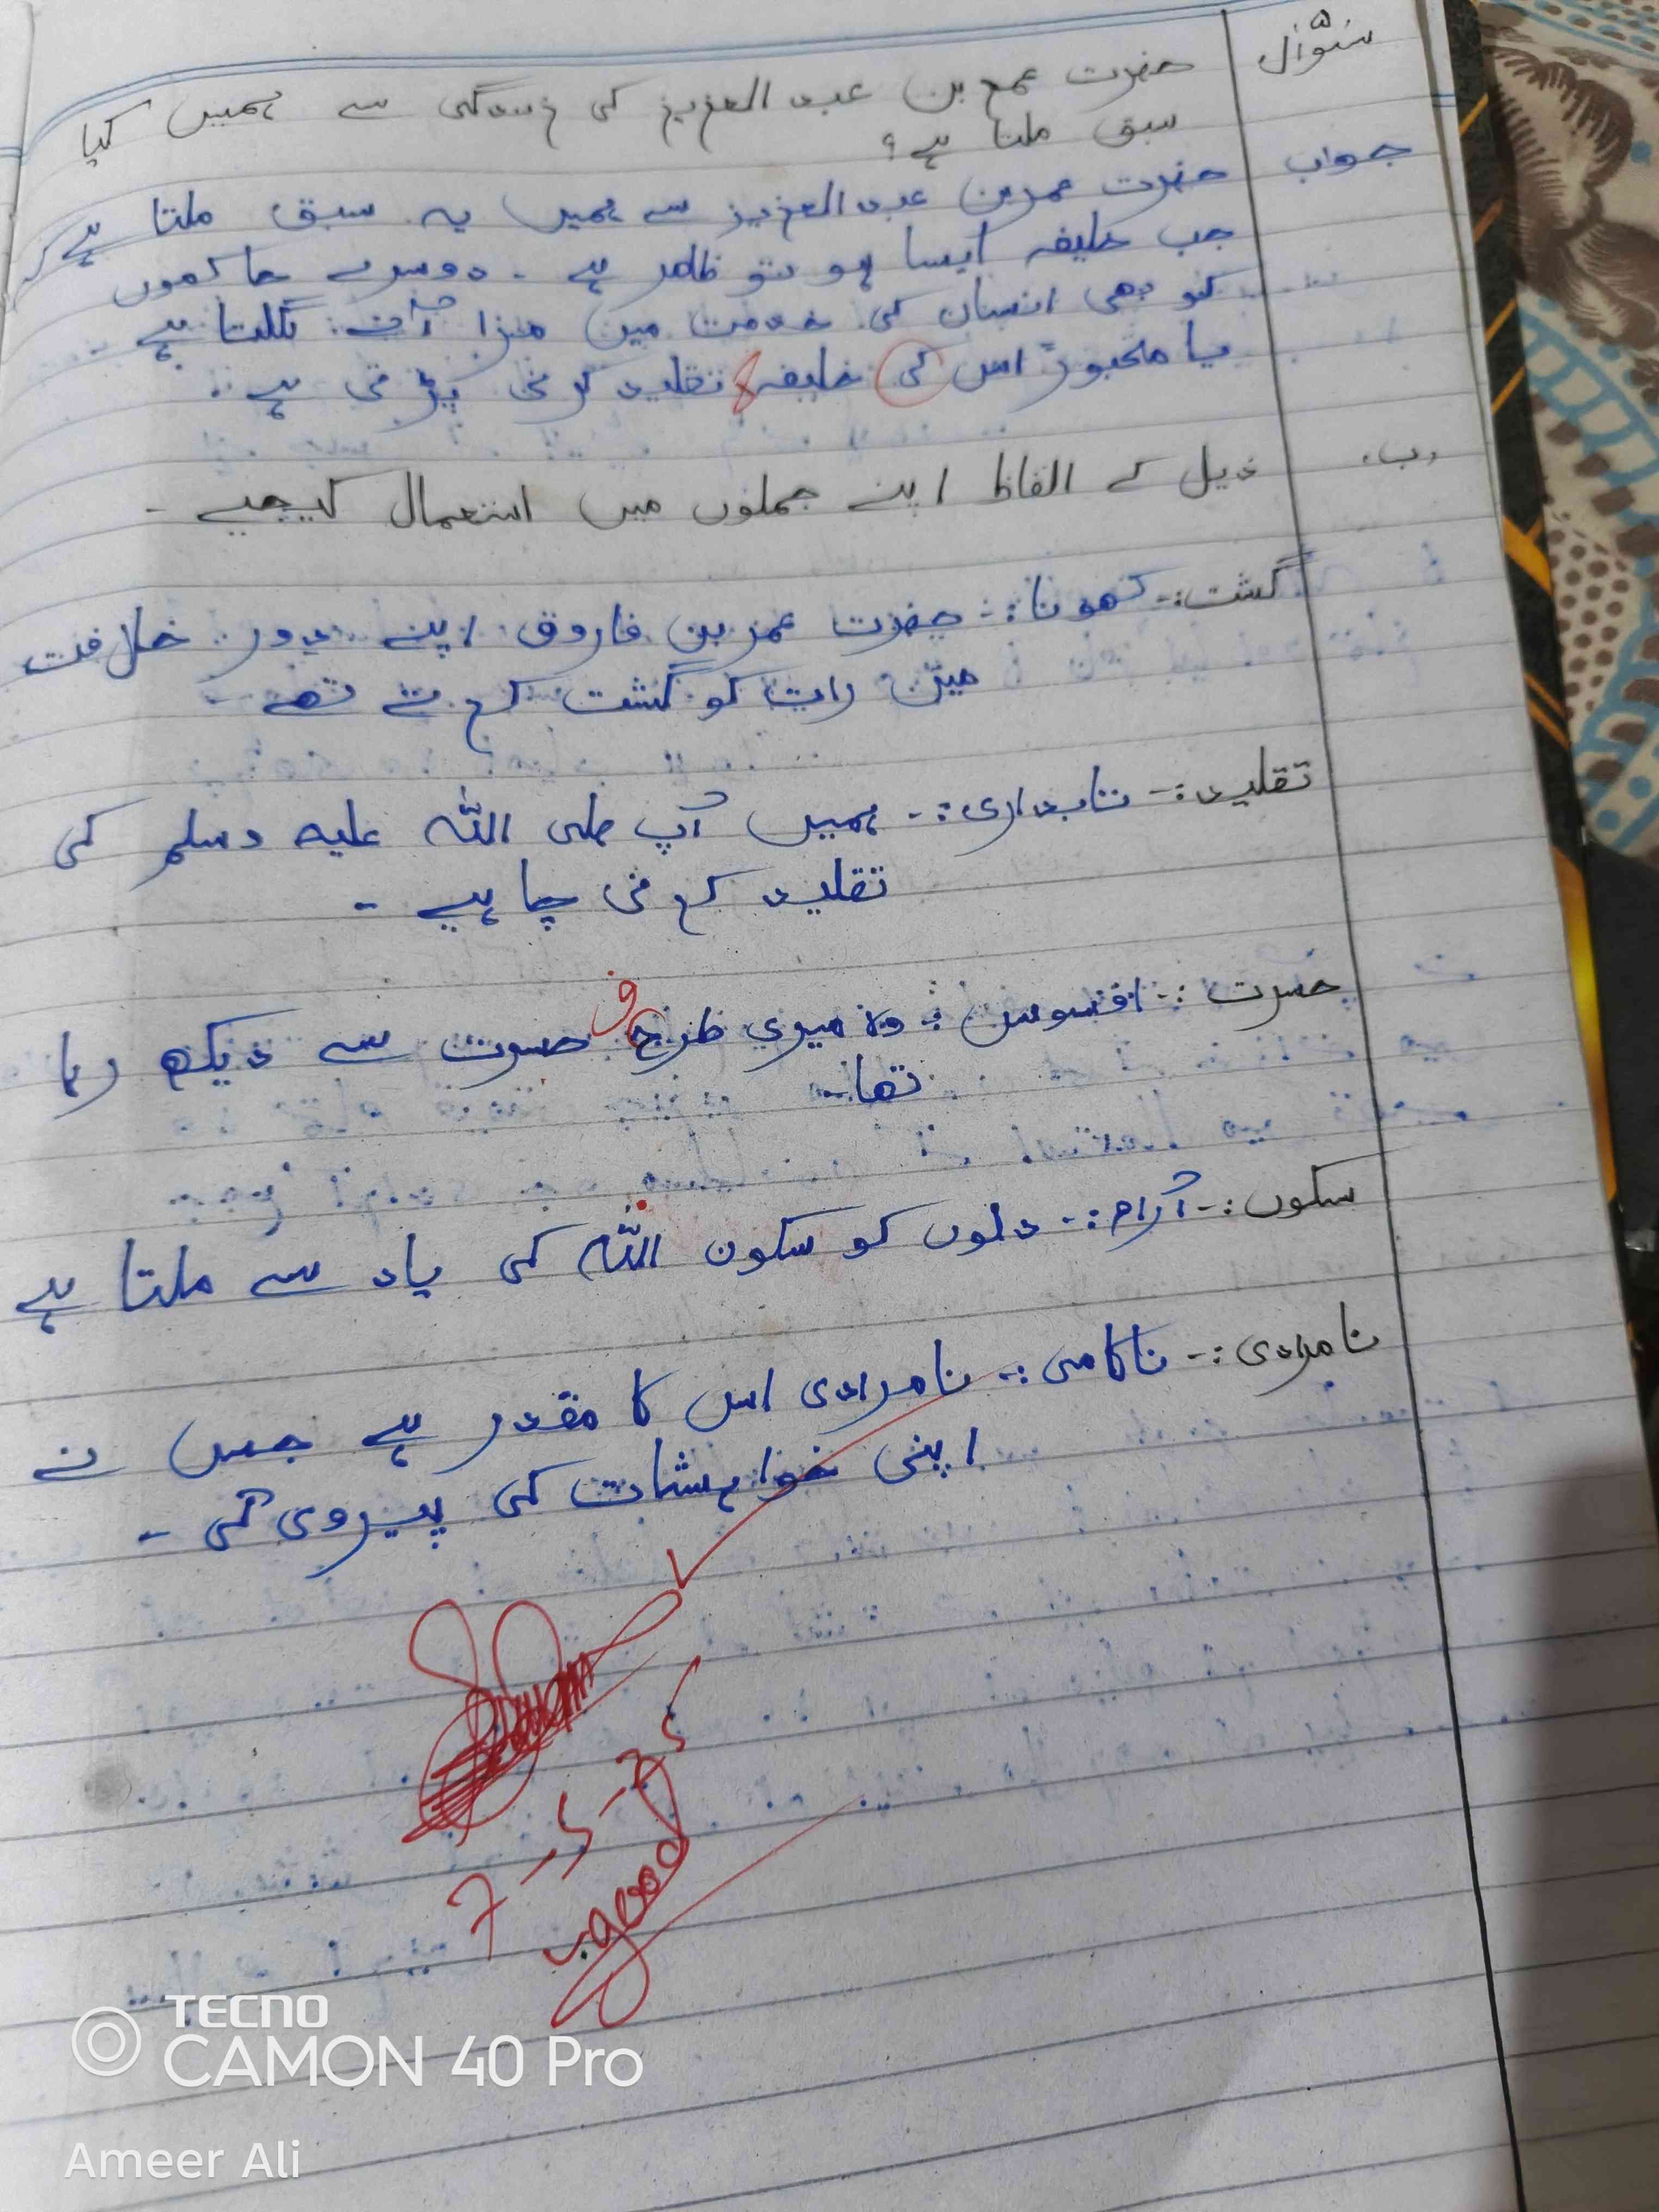 سوال ۵
حضرت عمر بن عبدالعزیز کی زندگی سے ہمیں کیا
سبق ملتا ہے؟
جواب حضرت عمر بن عبدالعزیز سے ہمیں یہ سبق ملتا ہے کہ
جب خلیفہ ایسا ہو تو ظاہر ہے ۔ دوسرے حاکموں
کو بھی انسان کی خدمت میں مزا آنے لگتا ہے
یا مجبوراً اس کی خلیفہ تقلید کرنی پڑتی ہے ۔
(ب) ذیل کے الفاظ اپنے جملوں میں استعمال کیجیے ۔
گشت :- گھومنا :- حضرت عمر بن فاروق اپنے دور خلافت
میں رات کو گشت کرتے تھے ۔
تقلید :- تابعداری :- ہمیں آپ صلی اللہ علیہ وسلم کی
تقلید کرنی چاہیے ۔
حسرت :- افسوس :- وہ میری طرح ف حسرت سے دیکھ رہا
تھا ۔
سکوں :- آرام :- دلوں کو سکون اللہ کی یاد سے ملتا ہے
نامرادی :- ناکامی :- نامرادی اس کا مقدر ہے جس نے
اپنی خواہشات کی پیروی کی ۔
7-5-25
v.good
TECNO
CAMON 40 Pro
Ameer Ali